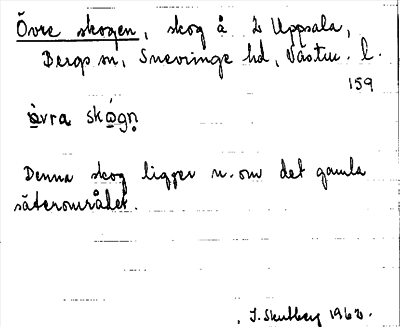 Övre skogen, skog å 2 Uppsala,
Bergs sn, Snevringe hd, Västm. l.
159
övra skogn
Denna skog ligger n. om det gamla
säterområdet.
1960.